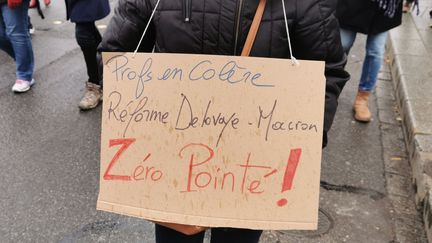 Profs en Colère
Réforme Delovoye - Macron
Zéro Pointé !